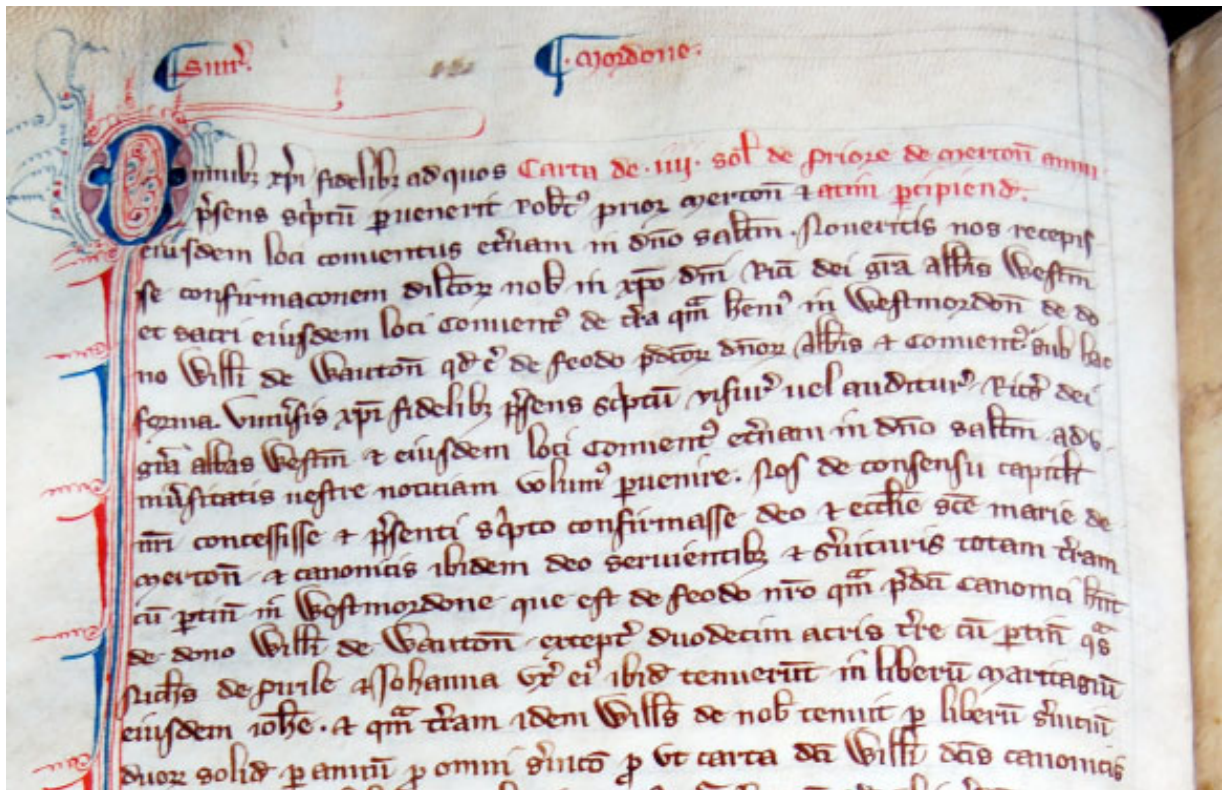 ¶ Surr'. ¶ . Mordone .
Omnibȝ xp̄i fidelibȝ ad quos Carta de . iiii . sol' de Priore de Merton̄ annu
p̄sens sc'ptū ꝑuenerit Rob't' prior Merton̄ ⁊ atim ꝑcipiend'.
eiusdem loci conuentus et'nam in dn̄o salt̄m . Noueritis nos recepis
se confirmac̄onem dilc̄oꝝ nob' in xp̄o dn̄i Ric̄i dei gr̄a Abb̄is Westm̄
et sacri eiusdem loci Conuent' de t'ra qm̄ hem' in Westmordon̄ de do
no Will'i de Wauton̄ qd' ē de feodo p̄dc̄oꝝ dn̄oꝝ Abb̄is ⁊ Conuent' sub hac
forma. Vniu'sis xp̄i fidelibȝ p̄sens sc'ptū visur' uel auditur' Ric' dei
gr̄a abbas Westm̄ ⁊ eiusdem loci Conuent' et'nam in dn̄o salt̄m . ad v
niu'sitatis uestre noticiam volum' ꝑuenire . Nos de consensu capit'li
nr̄i concessisse ⁊ p̄senti sc'pto confirmasse deo ⁊ eccl'ie sc̄e marie de
Merton̄ ⁊ canonicis ibidem deo seruientibȝ ⁊ s'uituris totam t'ram
cū ꝑtin̄ in Westmordone que est de feodo nr̄o qm̄ p̄dc̄i Canonici hn̄t
de dono Will'i de Wauton̄ except' duodecim acris t're cū ꝑtin̄ qᵃs
Nich's de Pirile ⁊ Johanna vx' ei' ibid' tenuerūt in liberū maritagiū
eiusdem ioh'e . ⁊ qm̄ t'ram idem Will's de nob' tenuit ꝑ liberū s'uiciū
duoꝝ solid' ꝑ annū ꝓ omni s'uic̄o ꝓ vt carta dc̄i Will'i dc̄is canonicis